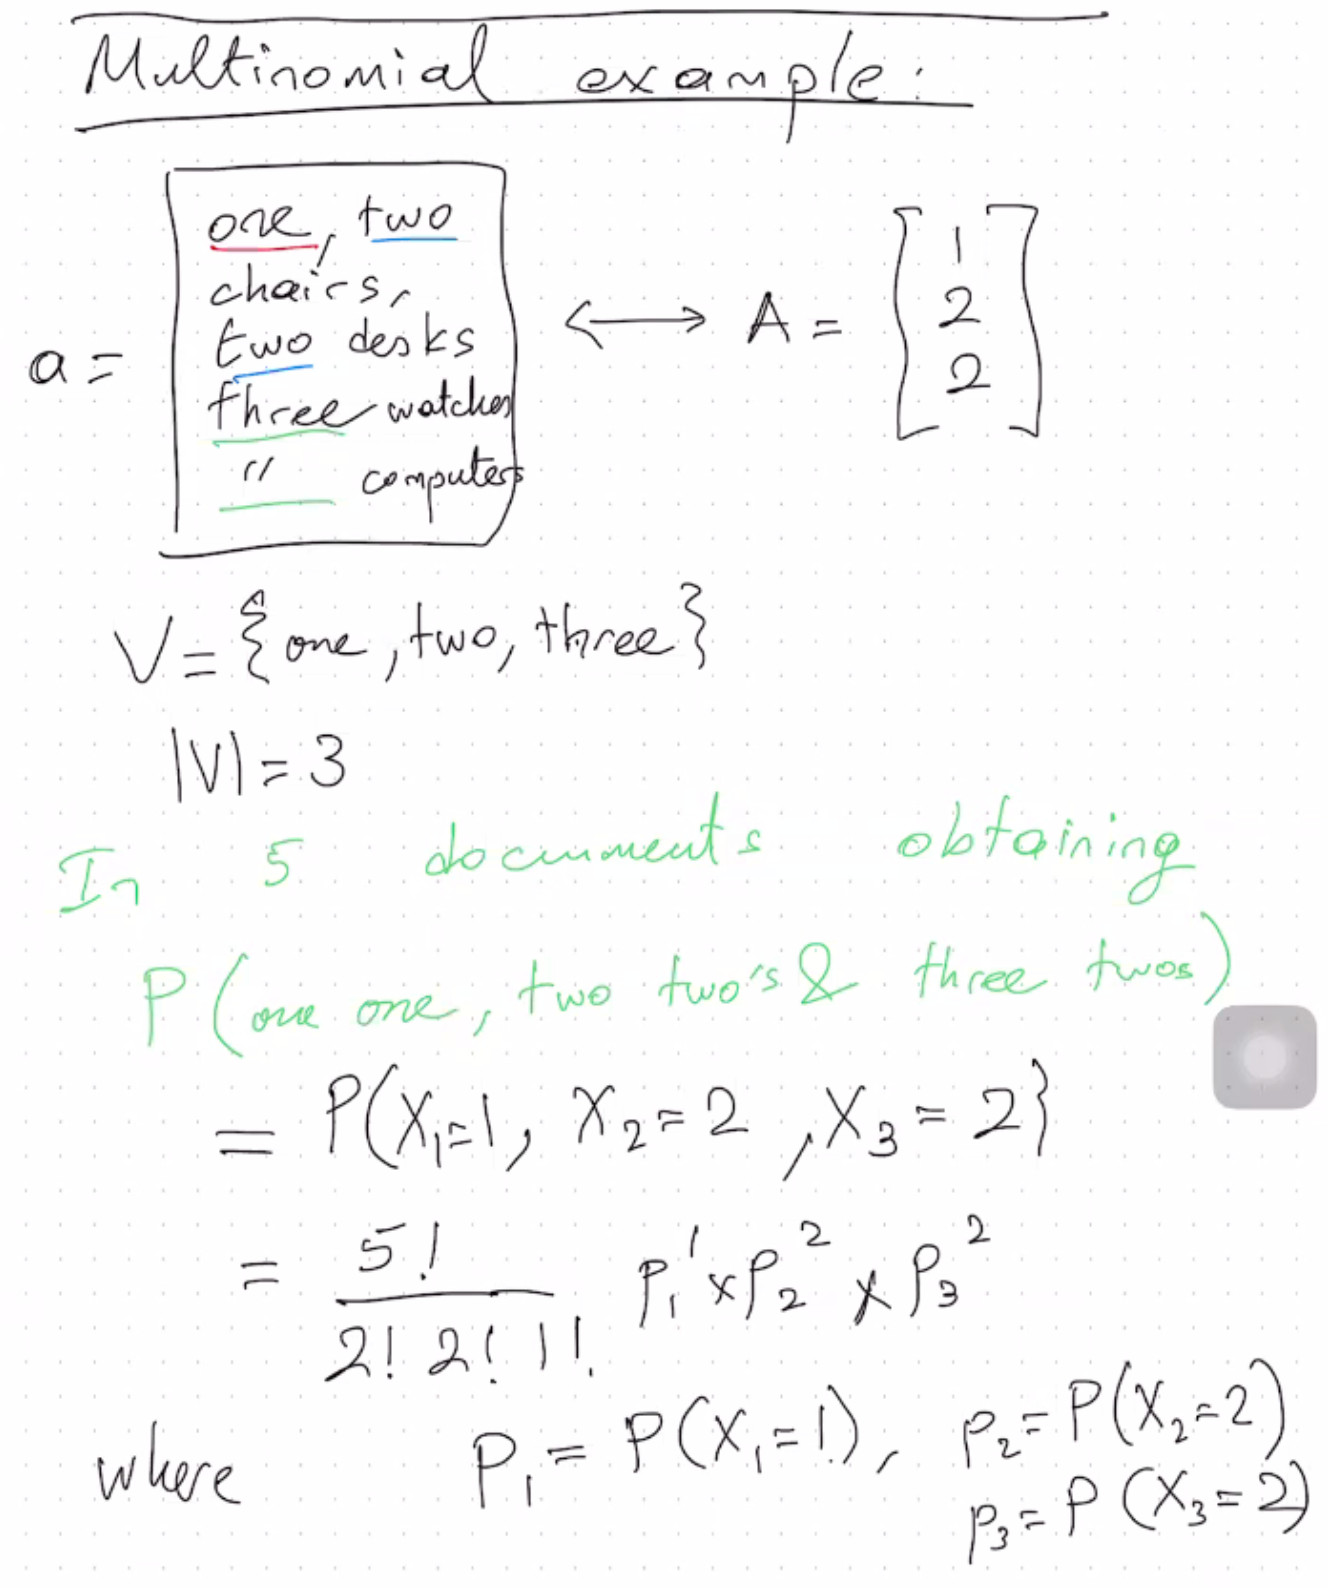 Multinomial example:
one, two
chairs,
two desks
three watches
" computers
a =
⟷ A = [1 2 2]
V = {one, two, three}
|V| = 3
In 5 documents obtaining
P(one one, two two's & three twos)
= P(X₁=1, X₂=2, X₃=2}
= 5! / 2! 2! 1! . p₁¹ x p₂² x p₃²
where P₁ = P(X₁=1), p₂ = P(X₂=2)
p₃ = P(X₃=2)